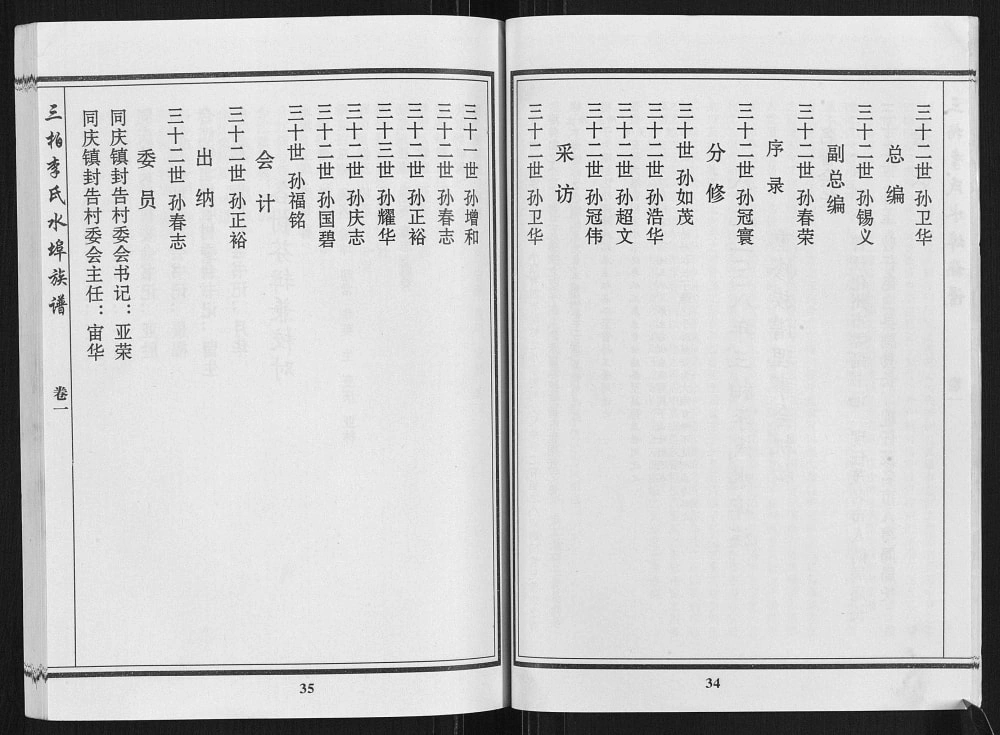 三十二世 孙卫华
总编
三十二世 孙锡义
副总编
三十二世 孙春荣
序录
三十二世 孙冠寰
分修
三十世 孙如茂
三十二世 孙浩华
三十二世 孙超文
三十二世 孙冠伟
采访
三十二世 孙卫华
34
三十一世 孙增和
三十二世 孙春志
三十二世 孙正裕
三十三世 孙耀华
三十二世 孙庆志
三十二世 孙国碧
三十世 孙福铭
会计
三十二世 孙正裕
出纳
三十二世 孙春志
委员
同庆镇封告村委会书记：亚荣
同庆镇封告村委会主任：宙华
三柏李氏水埠族谱
卷一
35